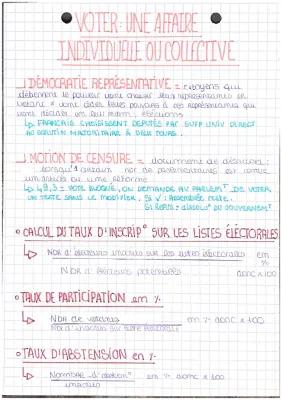 VOTER : UNE AFFAIRE
INDIVIDUELLE OU COLLECTIVE
DÉMOCRATIE REPRÉSENTATIVE = citoyens qui
détiennent le pouvoir vont choisir leurs représentants en
votant & vont céder leurs pouvoirs à ces représentants qui
vont décider en leur nom, élections
↳ FRANÇAIS CHOISISSENT DÉPUTÉS PAR SUFF UNIV DIRECT
AU SCRUTIN MAJORITAIRE À DEUX TOURS.
MOTION DE CENSURE = document de désaccord :
lorsqu'1 certain nbr de parlementaires est contre
une réforme
↳ 49,3 = VOTE BLOQUÉ, ON DEMANDE AU PARLEMT DE VOTER
UN TEXTE SANS LE MODIFIER. SI ✓ : ASSEMBLÉE
SI REFUS = DISSOLU° DU GOUVERNEMT
CALCUL DU TAUX D'INSCRIP° SUR LES LISTES ÉLECTORALES
Nbr d'électeurs inscrits sur les listes électorales en
%
Nbr d'électeurs potentiels donc x 100
TAUX DE PARTICIPATION en %
Nbr de votants en % donc x 100
Nbr d'inscrits sur liste électorale
TAUX D'ABSTENSION en %
Nombre d'abstent° en % donc x 100
inscrits